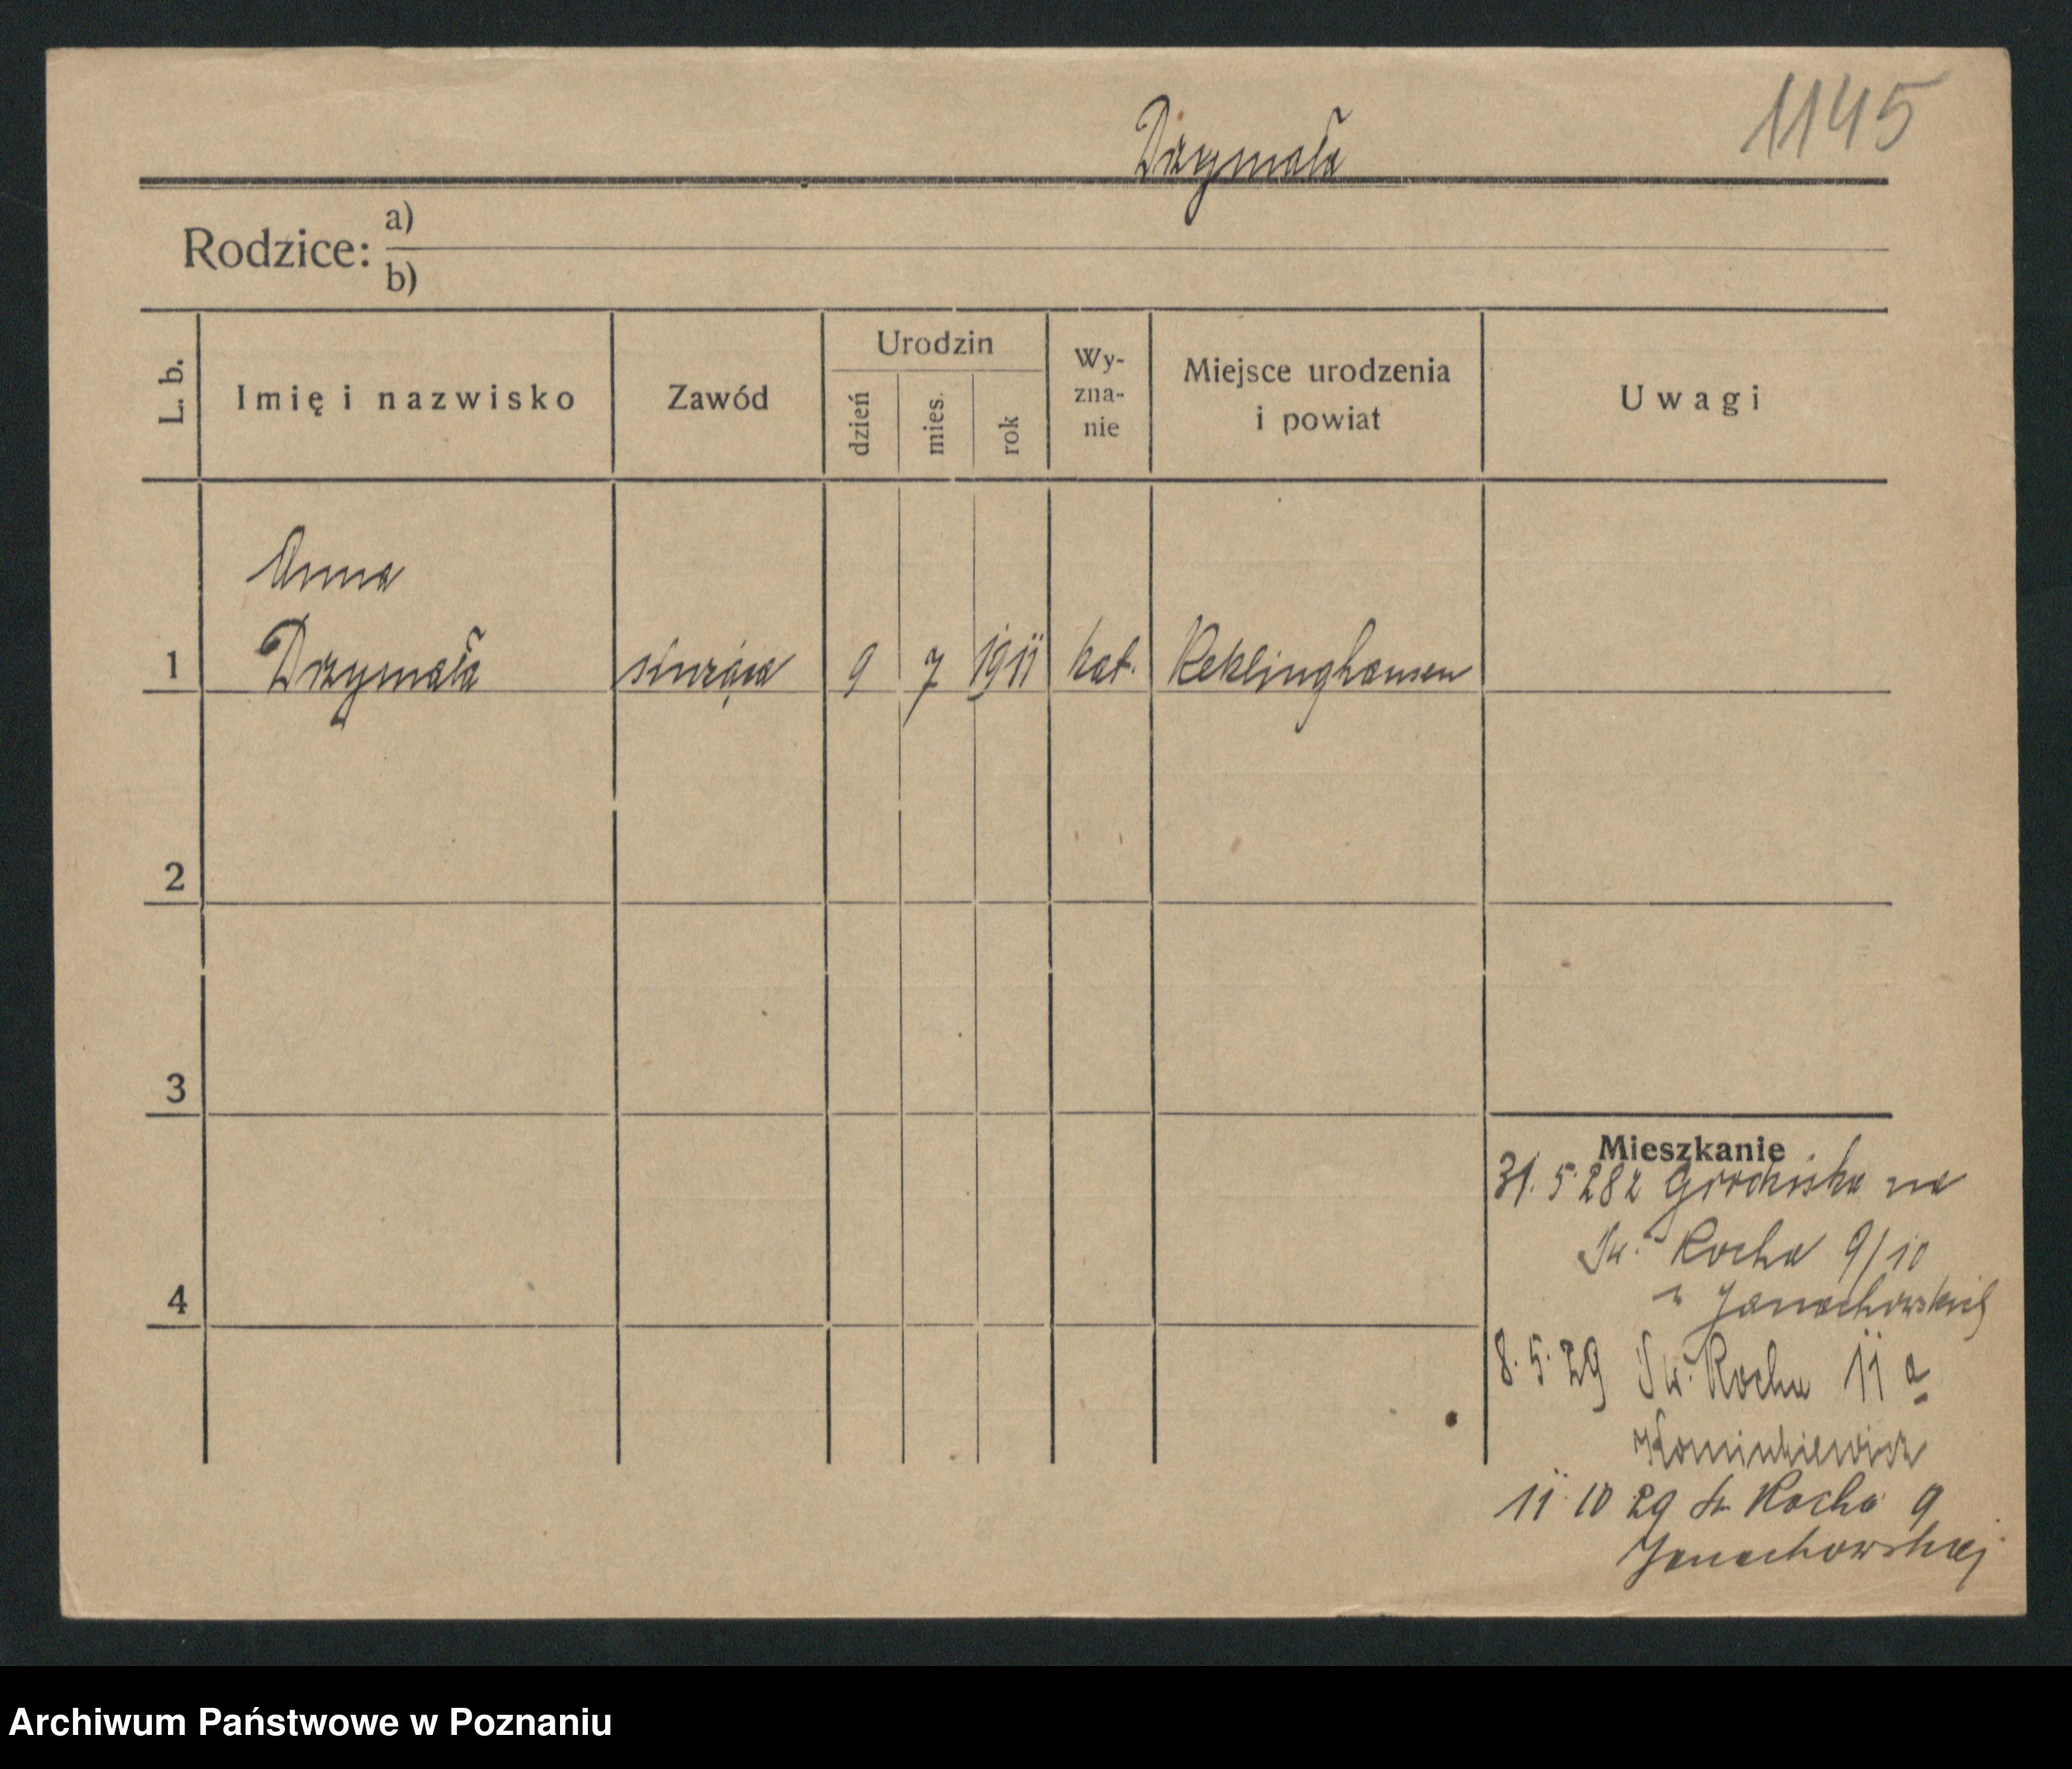 1145
Drzymała
Rodzice:
a)
b)
L. b.
Imię i nazwisko
Zawód
Urodzin
dzień
mies.
rok
Wy-
zna-
nie
Miejsce urodzenia
i powiat
Uwagi
Anna
1 Drzymała służąca 9 7 1911 kat. Reklinghausen
2
3
4
Mieszkanie
31.5.28 z Grodziska na
Św. Rocha 9/10
u Janachowskich
8.5.29 Św. Rocha 11 a
11 10 29 Św Rocha 9
Janachowskiej
Archiwum Państwowe w Poznaniu